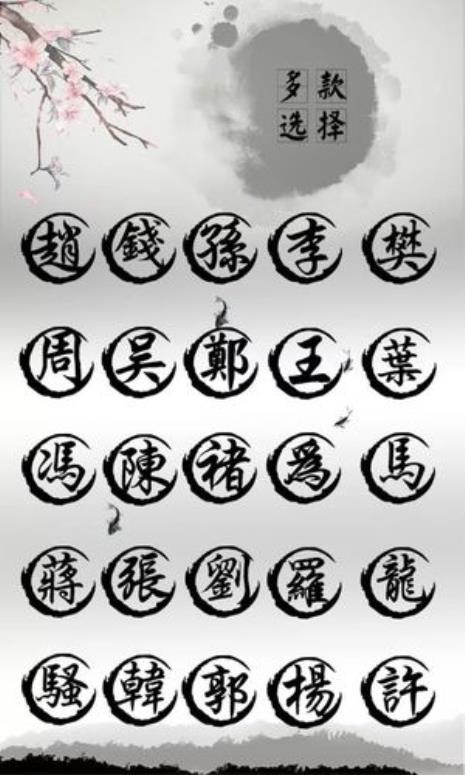 多款
选择
趙錢孫李樊
周吴鄭王葉
馮陳褚為馬
蔣張劉羅龍
騷韓郭揚許